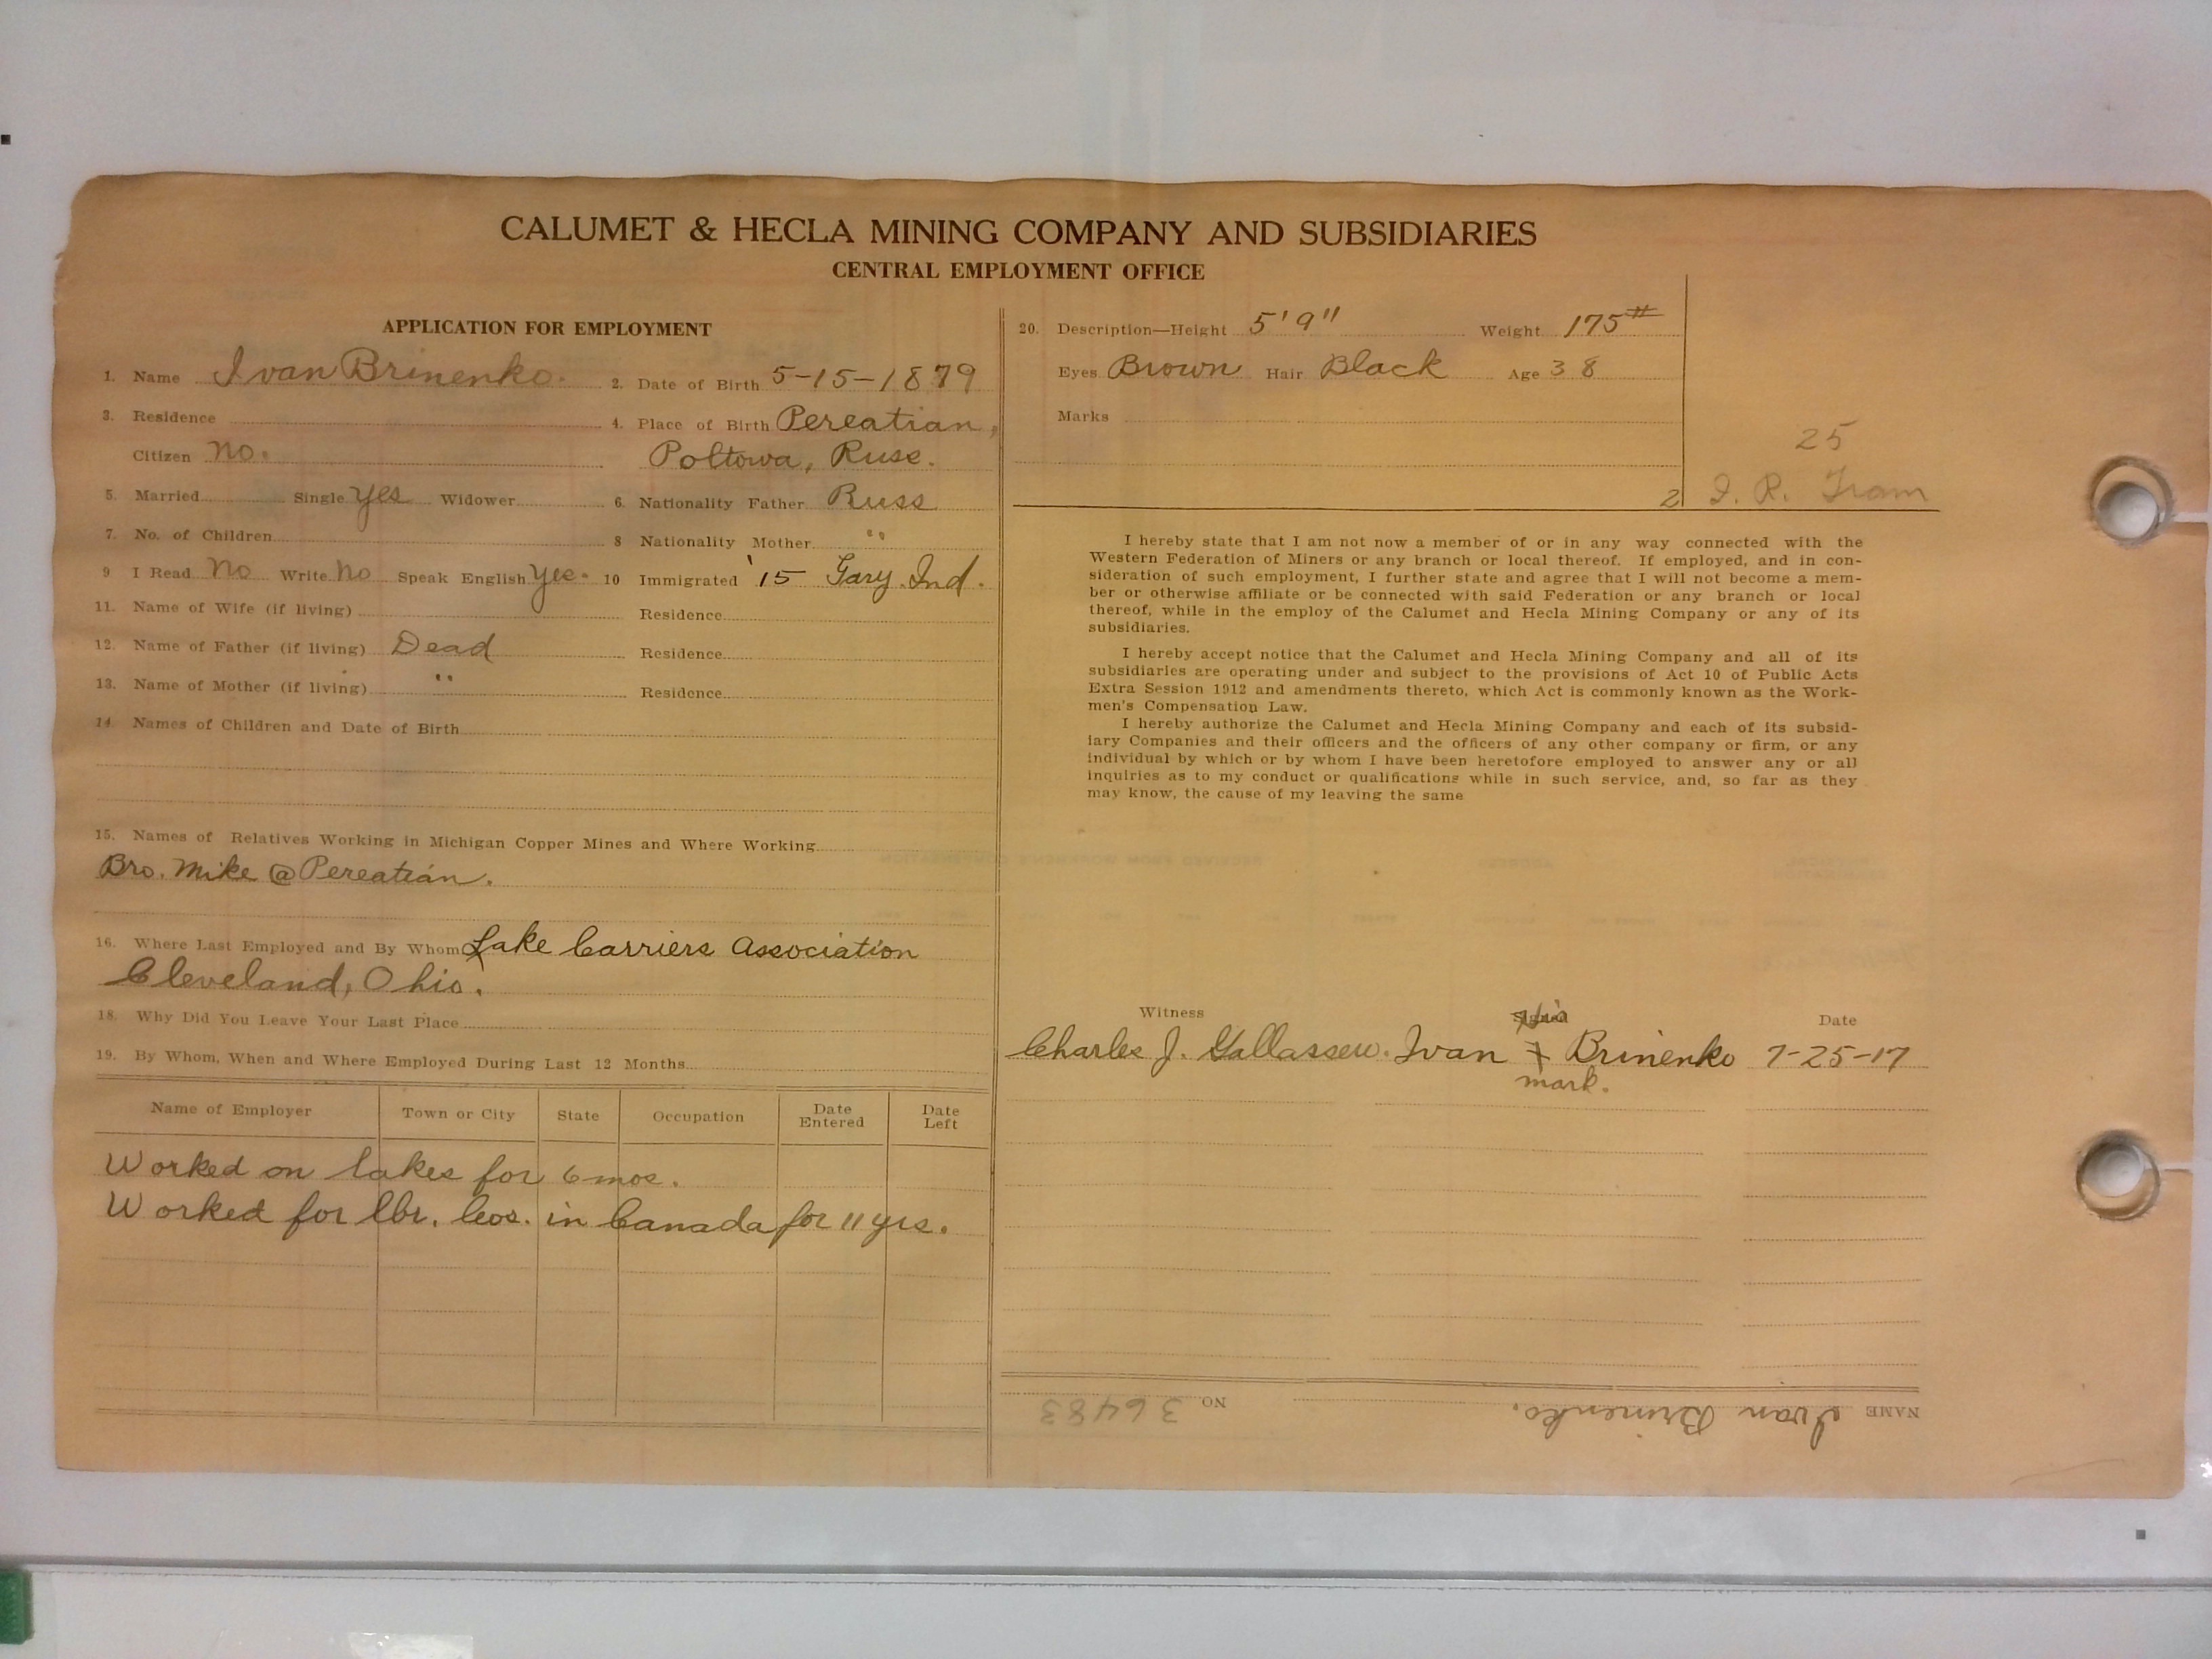 CALUMET & HECLA MINING COMPANY AND SUBSIDIARIES
CENTRAL EMPLOYMENT OFFICE
APPLICATION FOR EMPLOYMENT
1. Name Ivan Brinenko. 2. Date of Birth 5-15-1879
3. Residence 4. Place of Birth Pereatian,
Citizen no. Poltowa, Russ.
5. Married Single yes Widower 6. Nationality Father Russ
7. No. of Children 8 Nationality Mother "
9 I Read No Write No Speak English yes. 10 Immigrated '15 Gary. Ind.
11. Name of Wife (if living) Residence
12. Name of Father (if living) Dead Residence
13. Name of Mother (if living) " Residence
14. Names of Children and Date of Birth
15. Names of Relatives Working in Michigan Copper Mines and Where Working
Bro. Mike @ Pereatian.
16. Where Last Employed and By Whom Lake Carriers Association
Cleveland, Ohio.
18. Why Did You Leave Your Last Place
19. By Whom, When and Where Employed During Last 12 Months
Name of Employer Town or City State Occupation Date Entered Date Left
Worked on lakes for 6 mos.
Worked for lbr. Cos. in Canada for 11 yrs.
20. Description—Height 5'9" Weight 175#
Eyes Brown Hair Black Age 38
Marks
25
2 J. R. Tram
I hereby state that I am not now a member of or in any way connected with the
Western Federation of Miners or any branch or local thereof. If employed, and in con-
sideration of such employment, I further state and agree that I will not become a mem-
ber or otherwise affiliate or be connected with said Federation or any branch or local
thereof, while in the employ of the Calumet and Hecla Mining Company or any of its
subsidiaries.
I hereby accept notice that the Calumet and Hecla Mining Company and all of its
subsidiaries are operating under and subject to the provisions of Act 10 of Public Acts
Extra Session 1912 and amendments thereto, which Act is commonly known as the Work-
men's Compensation Law.
I hereby authorize the Calumet and Hecla Mining Company and each of its subsid-
iary Companies and their officers and the officers of any other company or firm, or any
individual by which or by whom I have been heretofore employed to answer any or all
inquiries as to my conduct or qualifications while in such service, and, so far as they
may know, the cause of my leaving the same
Witness Signed his Date
Charles J. Gallassew. Ivan + Brinenko 7-25-17
mark.
NAME Ivan Brinenko. NO. 36483